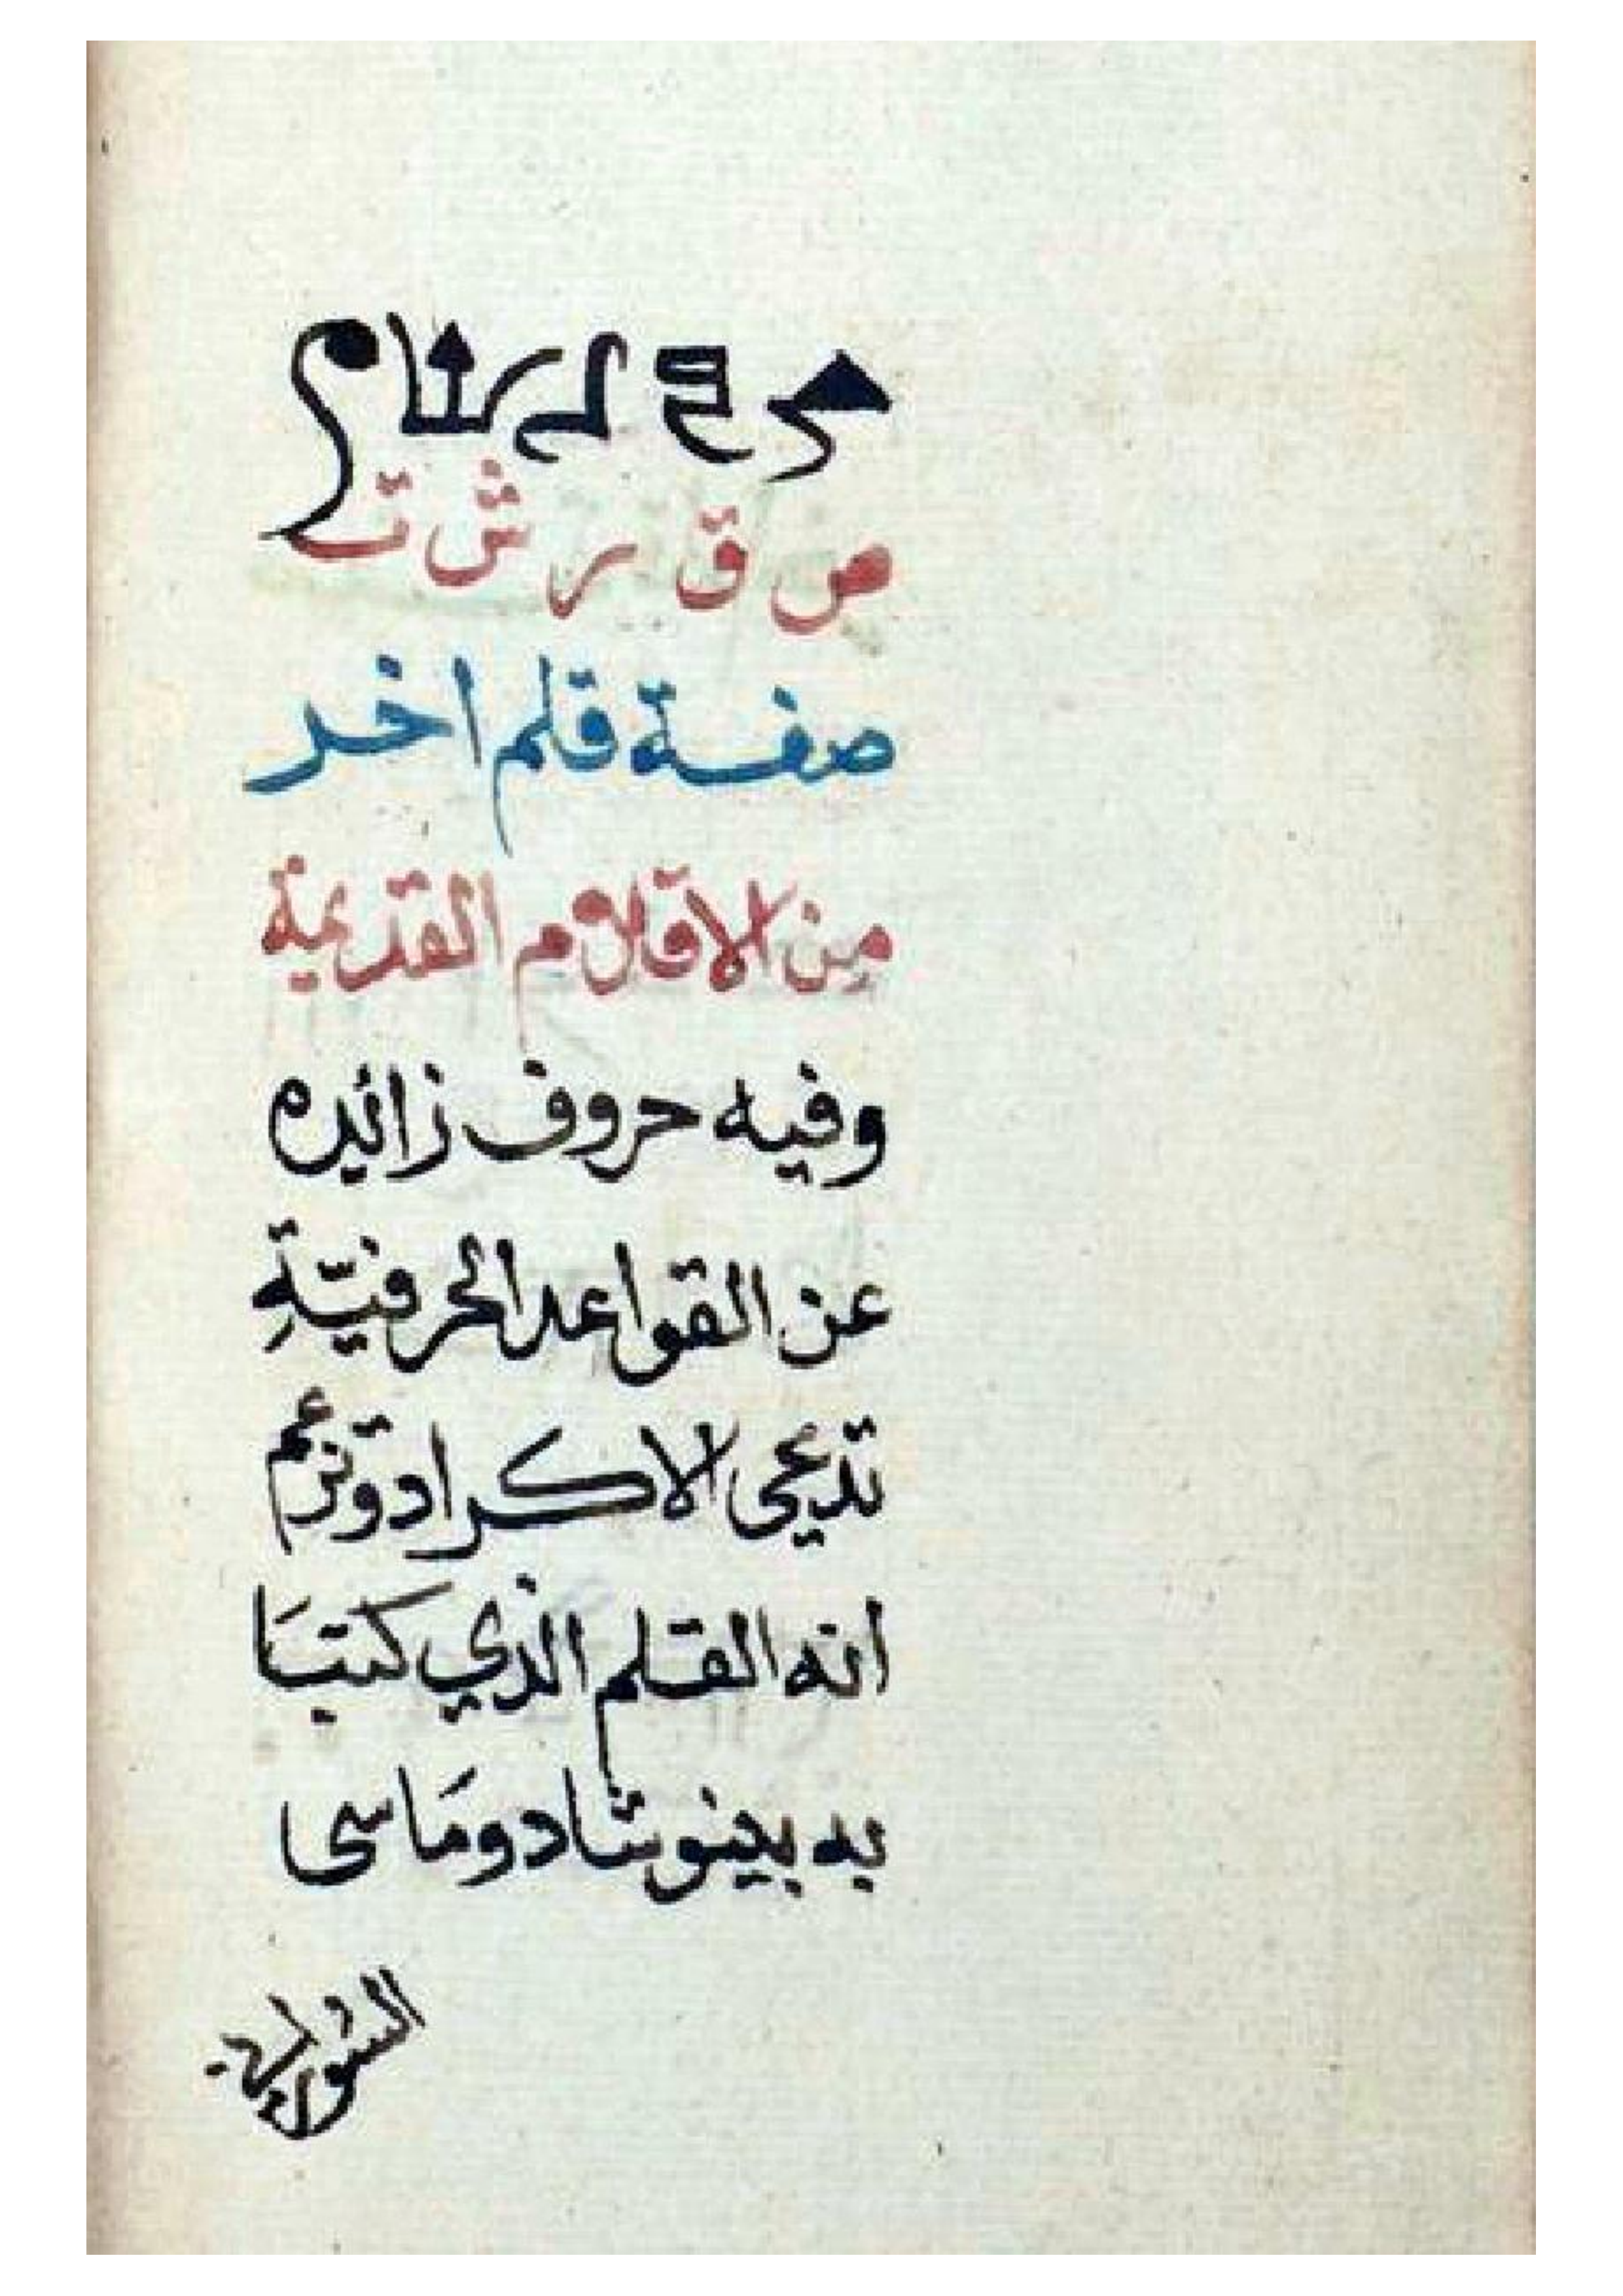 ص ق ر ش ت
صفة قلم اخر
من الاقلام القديمة
وفيه حروف زائده
عن القواعد الحرفيّةِ
تدعى الاكراد وتزعم
انه القلم الذي كتبَا
به بينوشاد ومَاسى
السوراني